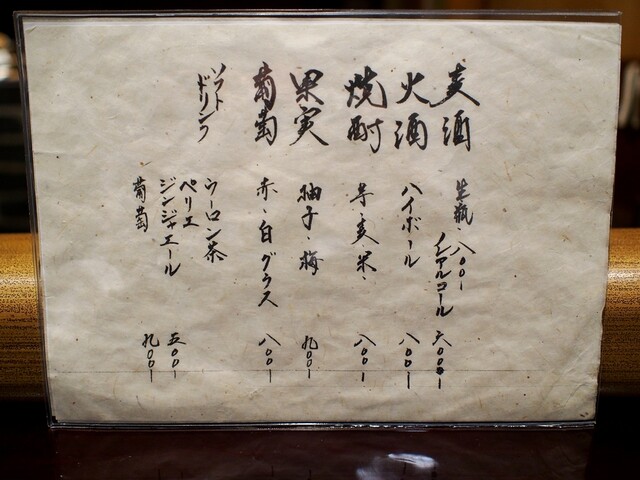 麦酒 生瓶・八〇〇ー
ノンアルコール 六〇〇ー
火酒 ハイボール 八〇〇ー
焼酎 芋・麦・米・ 八〇〇ー
果実 柚子・梅 九〇〇ー
葡萄 赤・白グラス 八〇〇ー
ソフトドリンク
ウーロン茶
ペリエ
ジンジャエール 五〇〇ー
葡萄 九〇〇ー